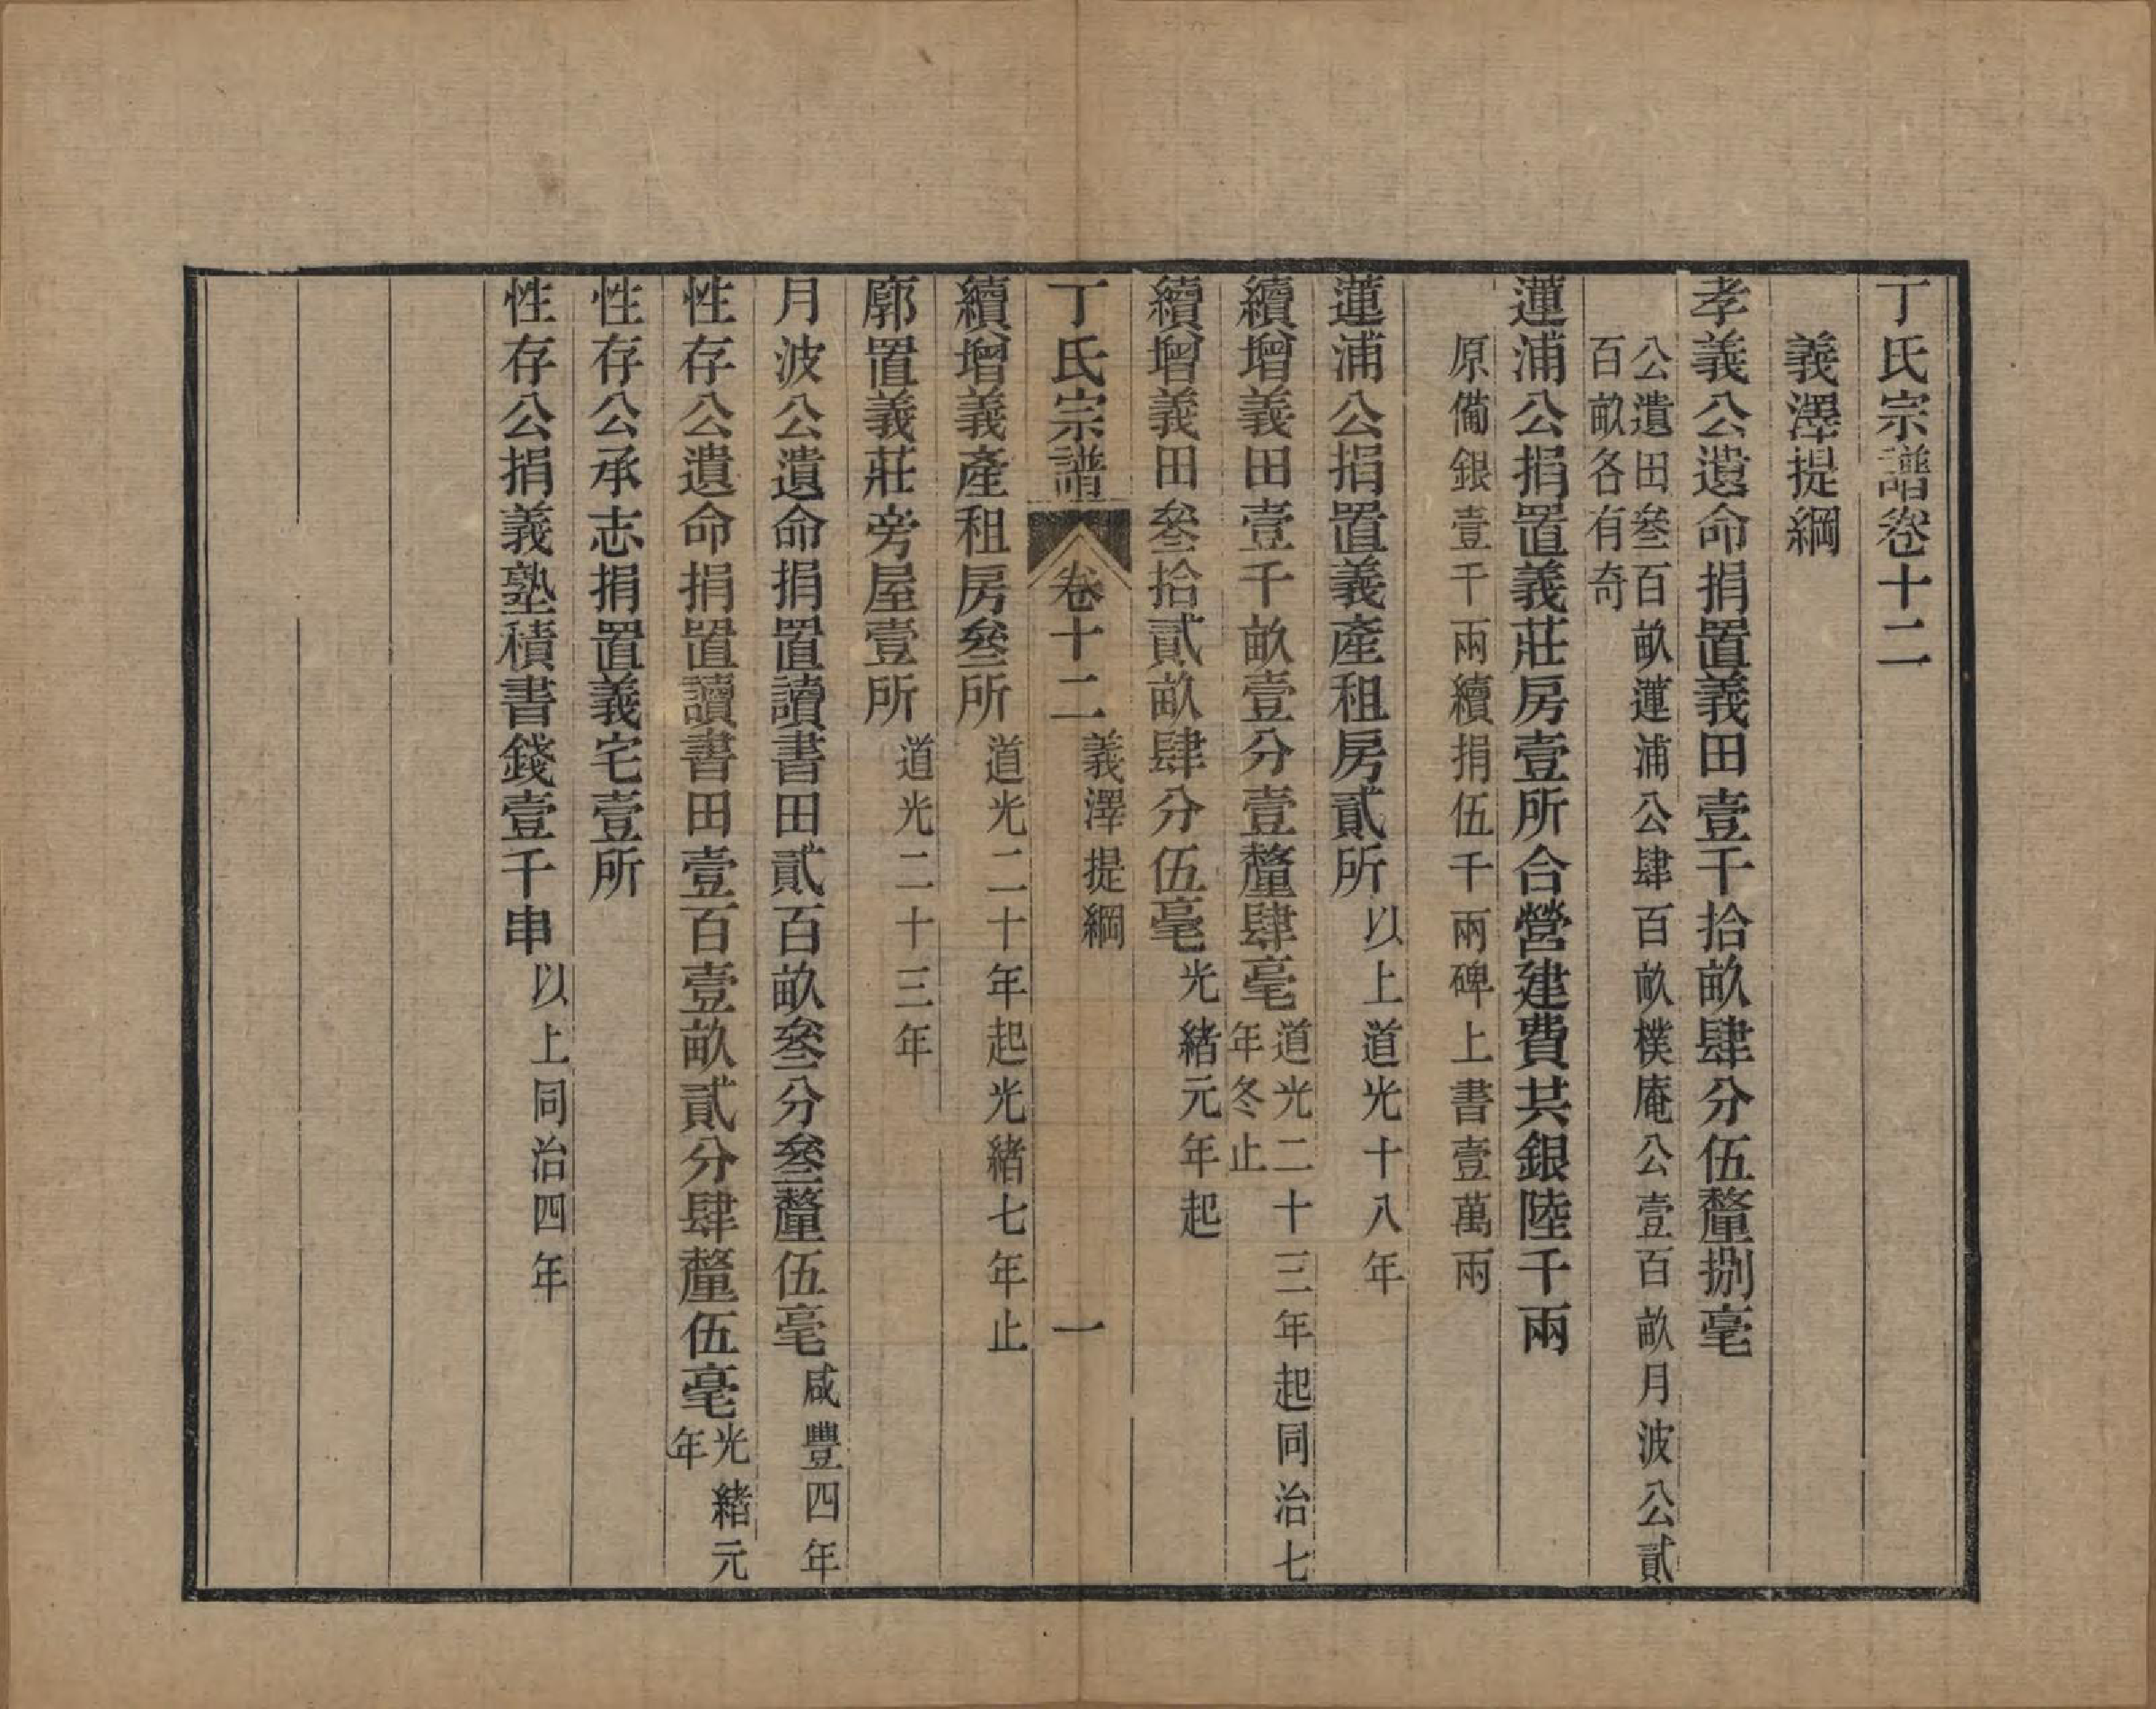 丁氏宗譜卷十二
義澤提綱
孝義公遺命捐置義田壹千拾畝肆分伍釐捌毫
公遺田叁百畝蓮浦公肆百畝樸庵公壹百畝月波公貳
百畝各有奇
蓮浦公捐置義莊房壹所合營建費共銀陸千兩
原備銀壹千兩續捐伍千兩碑上書壹萬兩
蓮浦公捐置義產租房貳所以上道光十八年
續增義田壹千畝壹分壹釐肆毫道光二十三年起同治七
年冬止
續增義田叄拾貳畝肆分伍毫光緒元年起
丁氏宗譜 卷十二義澤提綱 一
續增義產租房叄所道光二十年起光緒七年止
廓置義莊旁屋壹所道光二十三年
月波公遺命捐置讀書田貳百畝叄分叄釐伍毫咸豐四年
性存公遺命捐置讀書田壹百壹畝貳分肆釐伍毫光緒元
年
性存公承志捐置義宅壹所
性存公捐義塾積書錢壹千串以上同治四年